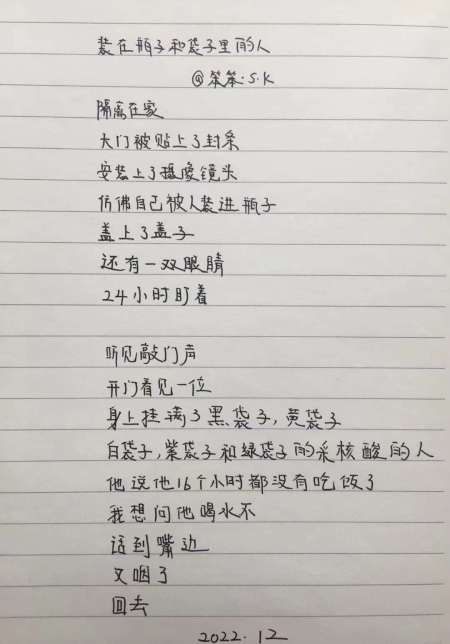 装在瓶子和袋子里的人
@笨笨:S.K
隔离在家
大门被贴上了封条
安装上了摄像镜头
仿佛自己被人装进瓶子
盖上了盖子
还有一双眼睛
24小时盯着
听见敲门声
开门看见一位
身上挂满了黑袋子,黄袋子
白袋子,紫袋子和绿袋子的采核酸的人
他说他16个小时都没有吃饭了
我想问他喝水不
话到嘴边
又咽了
回去
2022.12